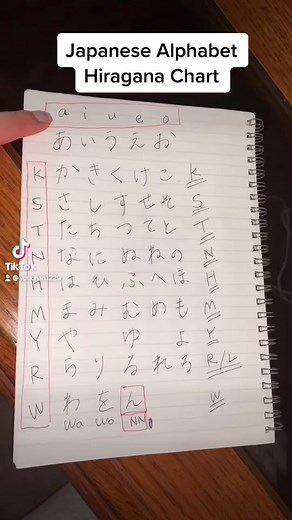 Japanese Alphabet
Hiragana Chart
a i u e o
あ い う え お
K か き く け こ K
S さ し す せ そ S
T た ち つ て と T
N な に ぬ ね の N
H は ひ ふ へ ほ H
M ま み む め も M
Y や ゆ よ Y
R ら り る れ ろ R/L
W わ を ん W
Wa Wo NN
TikTok